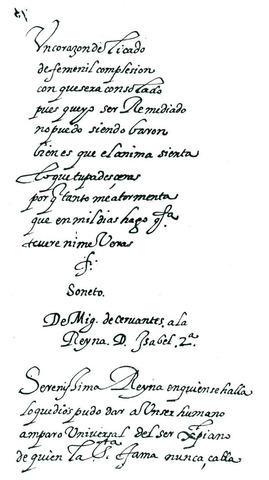 Un corazon delicado
de femenil complesion
con que sera consolado
pues que yo ser Remediado
no puedo siendo baron
bien es que el anima sienta
lo que tu padesceras
por q̃ tanto me atormenta
que en mil dias hago qta
te vere ni me Veras
Soneto.
De Mig. de cervantes, a la
Reyna. D. Isabel. 2ª.
Serenissima Reyna en quien se halla
lo que dios pudo dar a Un ser humano
amparo Universal del ser xp̃iano
de quien la S.ta fama nunca calla